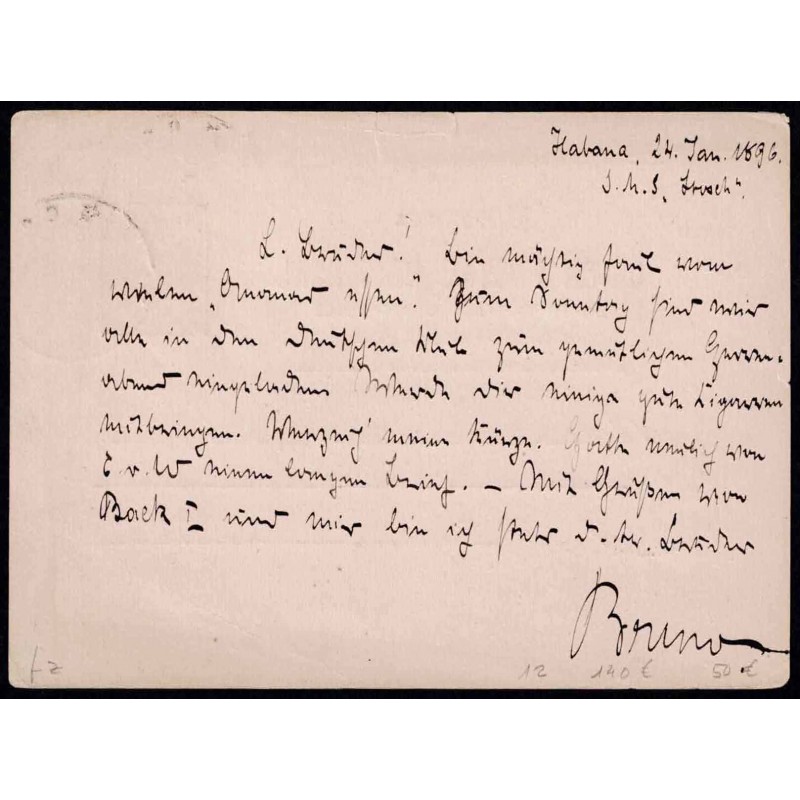 Habana, 24. Jan. 1896.
S.M.S „Stosch“.
L. Bruder! Bin mächtig faul vom
vielen essen“. Zum Sonntag sind wir
alle in den deutschen Klub zum gemütlichen Herren-
abend eingeladen Werde dir einige gute Cigarren
mitbringen. Verzeih' meine Kürze. Hatte neulich von
E v. W einen langen Brief. – Mit Grüßen von
Back I und mir bin ich stets d. tr. Bruder
Bruno
12 140 € 50 €